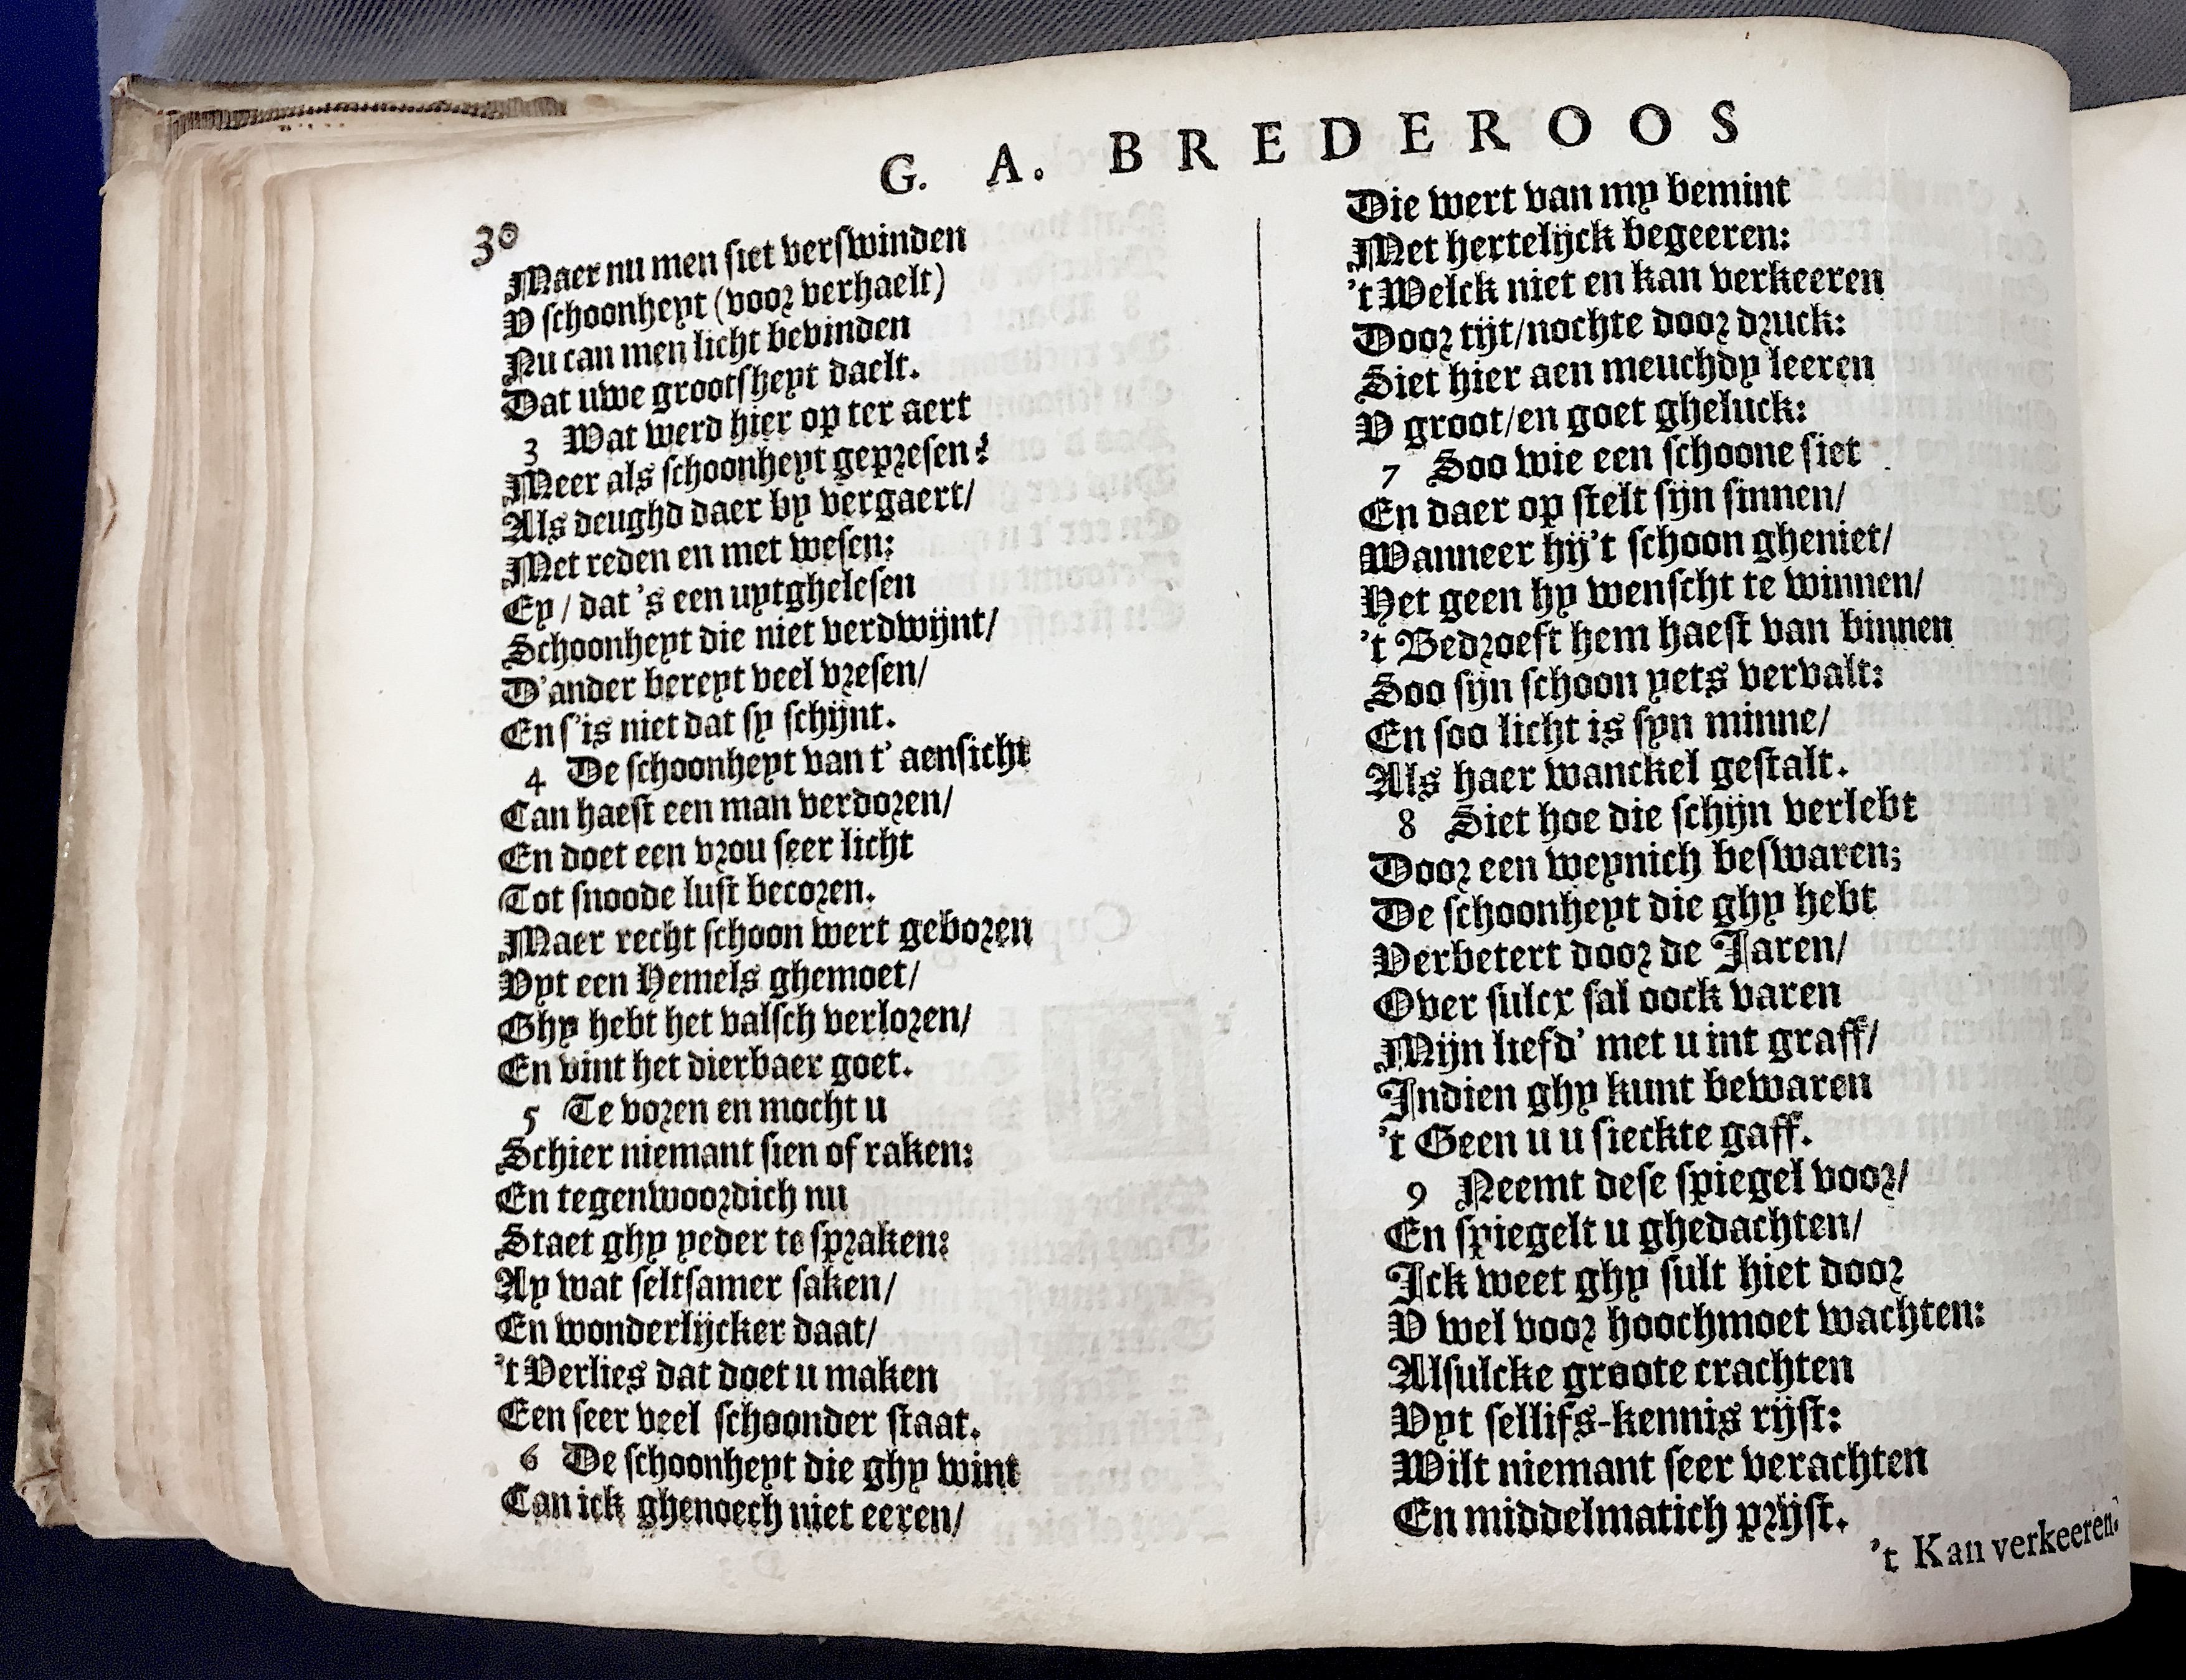 G. A. BREDEROOS
30
Maer nu men siet verswinden
V schoonheyt (voor verhaelt)
Nu can men licht bevinden
Dat uwe grootsheyt daelt.
3 Wat werd hier op ter aert
Meer als schoonheyt gepresen?
Als deughd daer by vergaert/
Met reden en met wesen:
Ey/ dat 's een uytghelesen
Schoonheyt die niet verdwijnt/
D'ander bereyt veel vresen/
En s'is niet dat sy schijnt.
4 De schoonheyt van t' aensicht
Can haest een man verdoren/
En doet een vrou seer licht
Tot snoode lust becoren.
Maer recht schoon wert geboren
Vyt een Hemels ghemoet/
Ghy hebt het valsch verloren/
En vint het dierbaer goet.
5 Te voren en mocht u
Schier niemant sien of raken:
En tegenwoordich nu
Staet ghy yeder te spraken:
Ay wat seltsamer saken/
En wonderlijcker daat/
't Verlies dat doet u maken
Een seer veel schoonder staat.
6 De schoonheyt die ghy wint
Can ick ghenoech niet eeren/
Die wert van my bemint
Met hertelijck begeeren:
't Welck niet en kan verkeeren
Door tijt/nochte door druck:
Siet hier aen meuchdy leeren
V groot/en goet gheluck:
7 Soo wie een schoone siet
En daer op stelt sijn sinnen/
Wanneer hij't schoon gheniet/
Het geen hy wenscht te winnen/
't Bedroeft hem haest van binnen
Soo sijn schoon yets vervalt:
En soo licht is syn minne/
Als haer wanckel gestalt.
8 Siet hoe die schijn verlebt
Door een weynich beswaren;
De schoonheyt die ghy hebt
Verbetert door de Jaren/
Over sulcx sal oock varen
Mijn liefd' met u int graff/
Indien ghy kunt bewaren
't Geen u u sieckte gaff.
9 Neemt dese spiegel voor/
En spiegelt u ghedachten/
Ick weet ghy sult hiet door
V wel voor hoochmoet wachten:
Alsulcke groote crachten
Vyt sellifs-kennis rijst:
Wilt niemant seer verachten
En middelmatich prijst.
't Kan verkeeren.